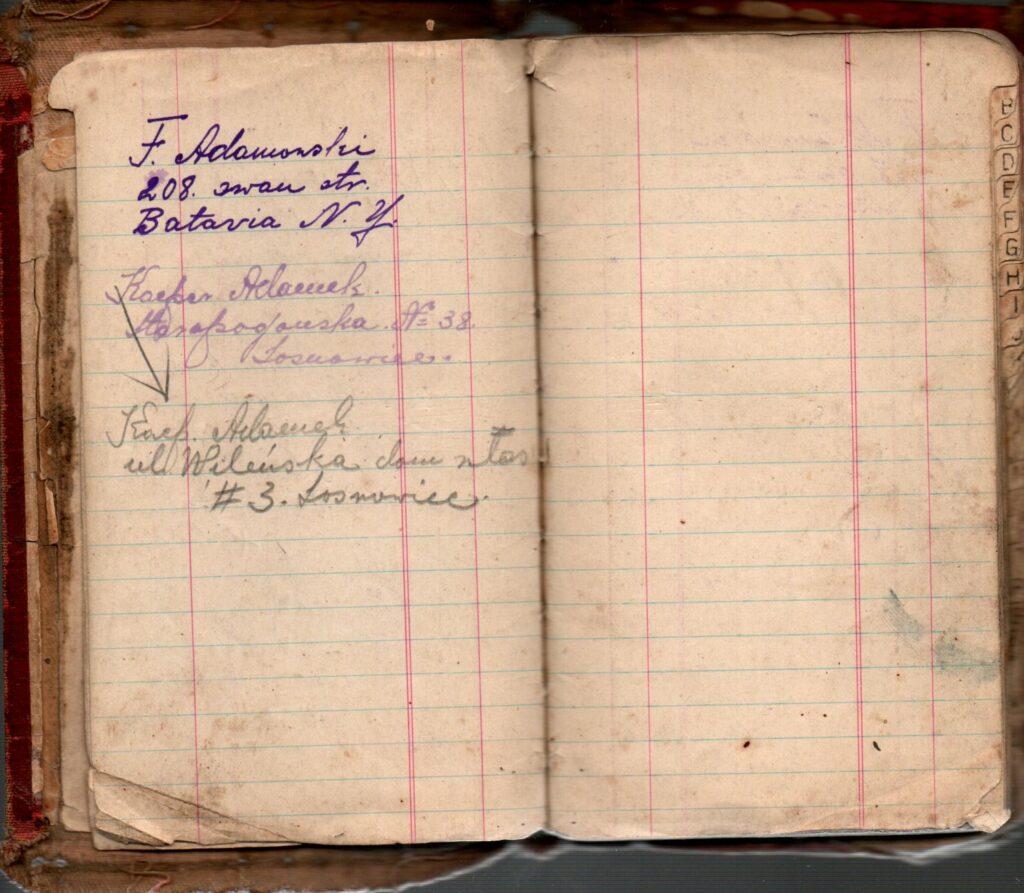 F. Adamowski
208. swan str.
Batavia N. Y.
Kacper Adamek.
Staropogonska. № 38.
Sosnowiec.
Kacp. Adamek
ul. Wileńska dom włas
#3. Sosnowiec.
B
C
D
E
F
G
H
I
J